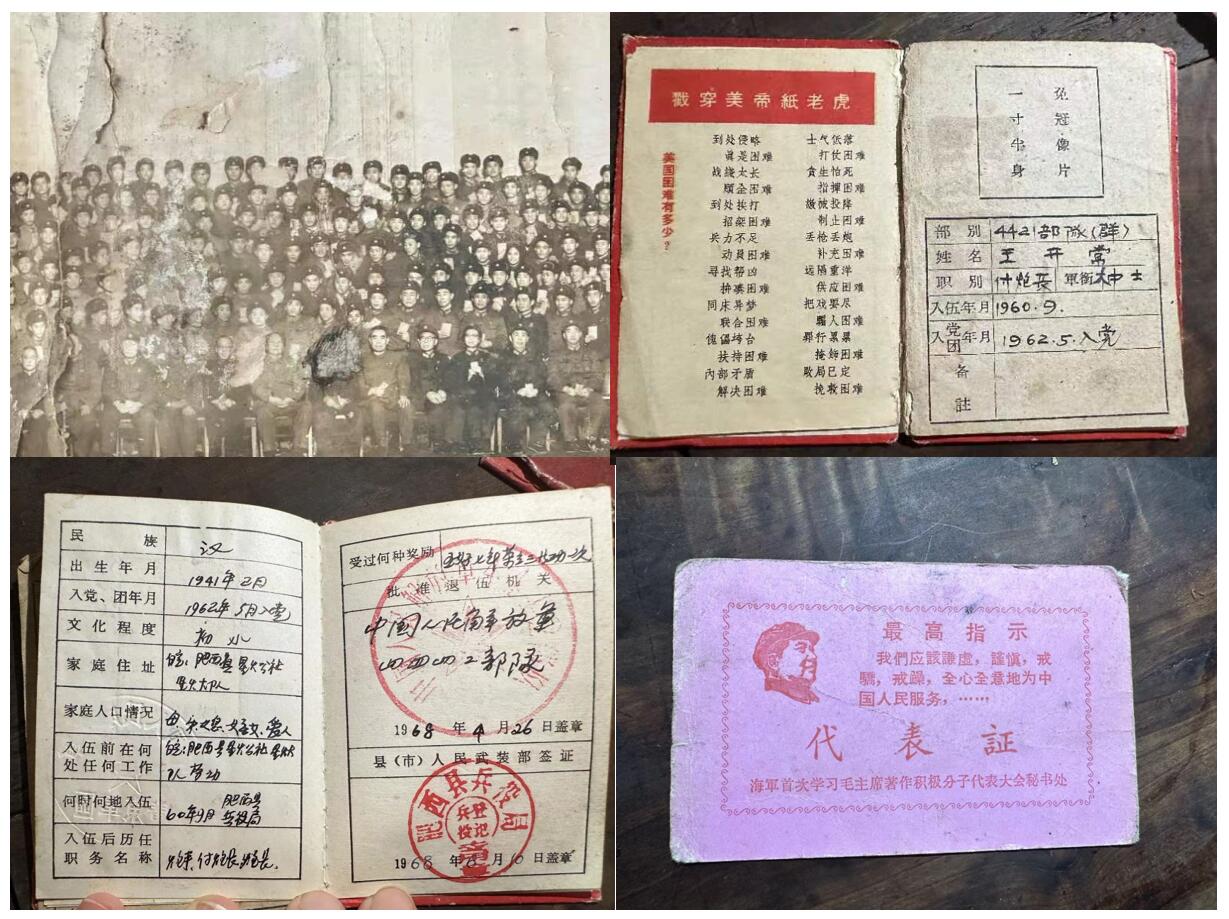 戳穿美帝紙老虎
美国困难有多少？
到处侵略
真是困难
战线太长
顾全困难
到处挨打
招架困难
兵力不足
动員困难
寻找帮凶
拚凑困难
同床异梦
联合困难
傀儡垮台
扶持困难
內部矛盾
解决困难
士气低落
打仗困难
貪生怕死
指揮困难
缴械投降
制止困难
丢枪丢炮
补充困难
远隔重洋
供应困难
把戏耍尽
騙人困难
罪行累累
掩飾困难
敗局已定
挽救困难
免冠像片
一寸半身
部別 4421部隊(群)
姓名 王开常
职別 付炮长 軍衔 中士
入伍年月 1960.9.
入党团年月 1962.5.入党
备註
民族 汉
出生年月 1941年2月
入党、团年月 1962年5月入党
文化程度 初小
家庭住址 肥西县星火公社
星火大队
家庭人口情况 爱人
入伍前在何处任何工作 肥西县星火公社星火
队劳动
何时何地入伍 60年9月 肥西县
兵役局
入伍后历任职务名称 付炮长、炮长.
受过何种奖励
批准退伍机关
中国人民解放軍
四四四二部隊
1968年4月26日盖章
县(市)人民武装部签证
肥西县兵役局
兵役登記章
1968年 月10日盖章
最高指示
我們应該謙虛，謹慎，戒
驕，戒躁，全心全意地为中
国人民服务，……
代表証
海軍首次学习毛主席著作积极分子代表大会秘书处